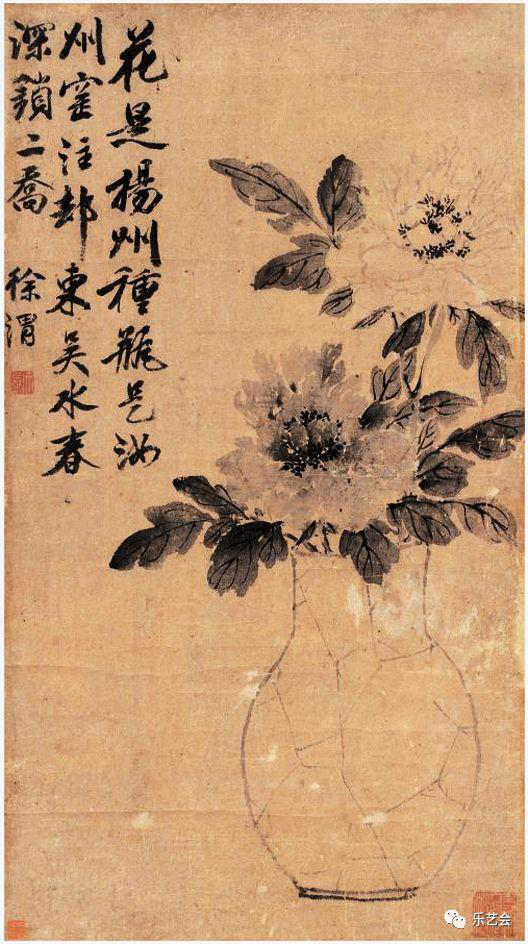 花是楊州種瓶是汝
州窰注却東吳水春
深鎖二喬
徐渭
乐艺会